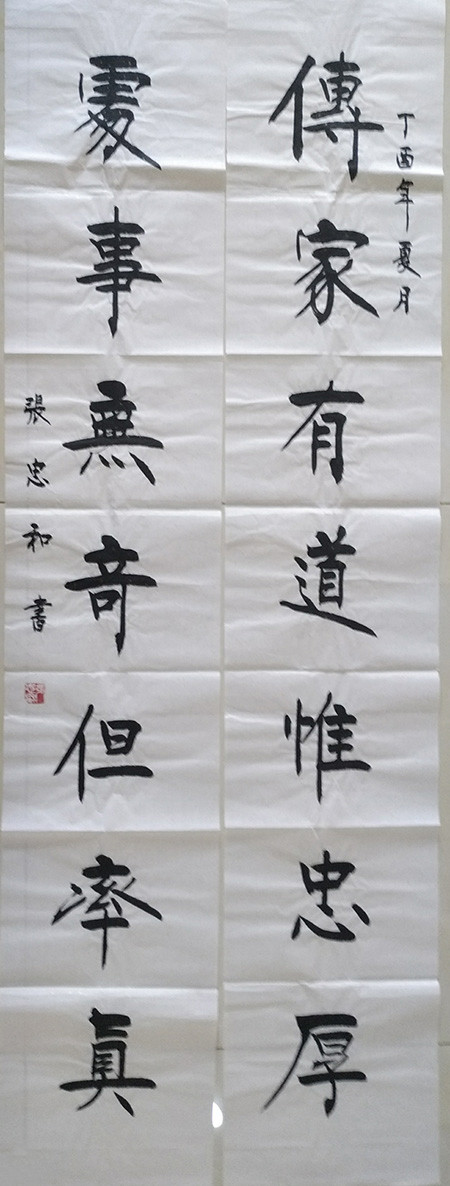 丁酉年夏月
傳家有道惟忠厚
處事無奇但率真
張忠和書